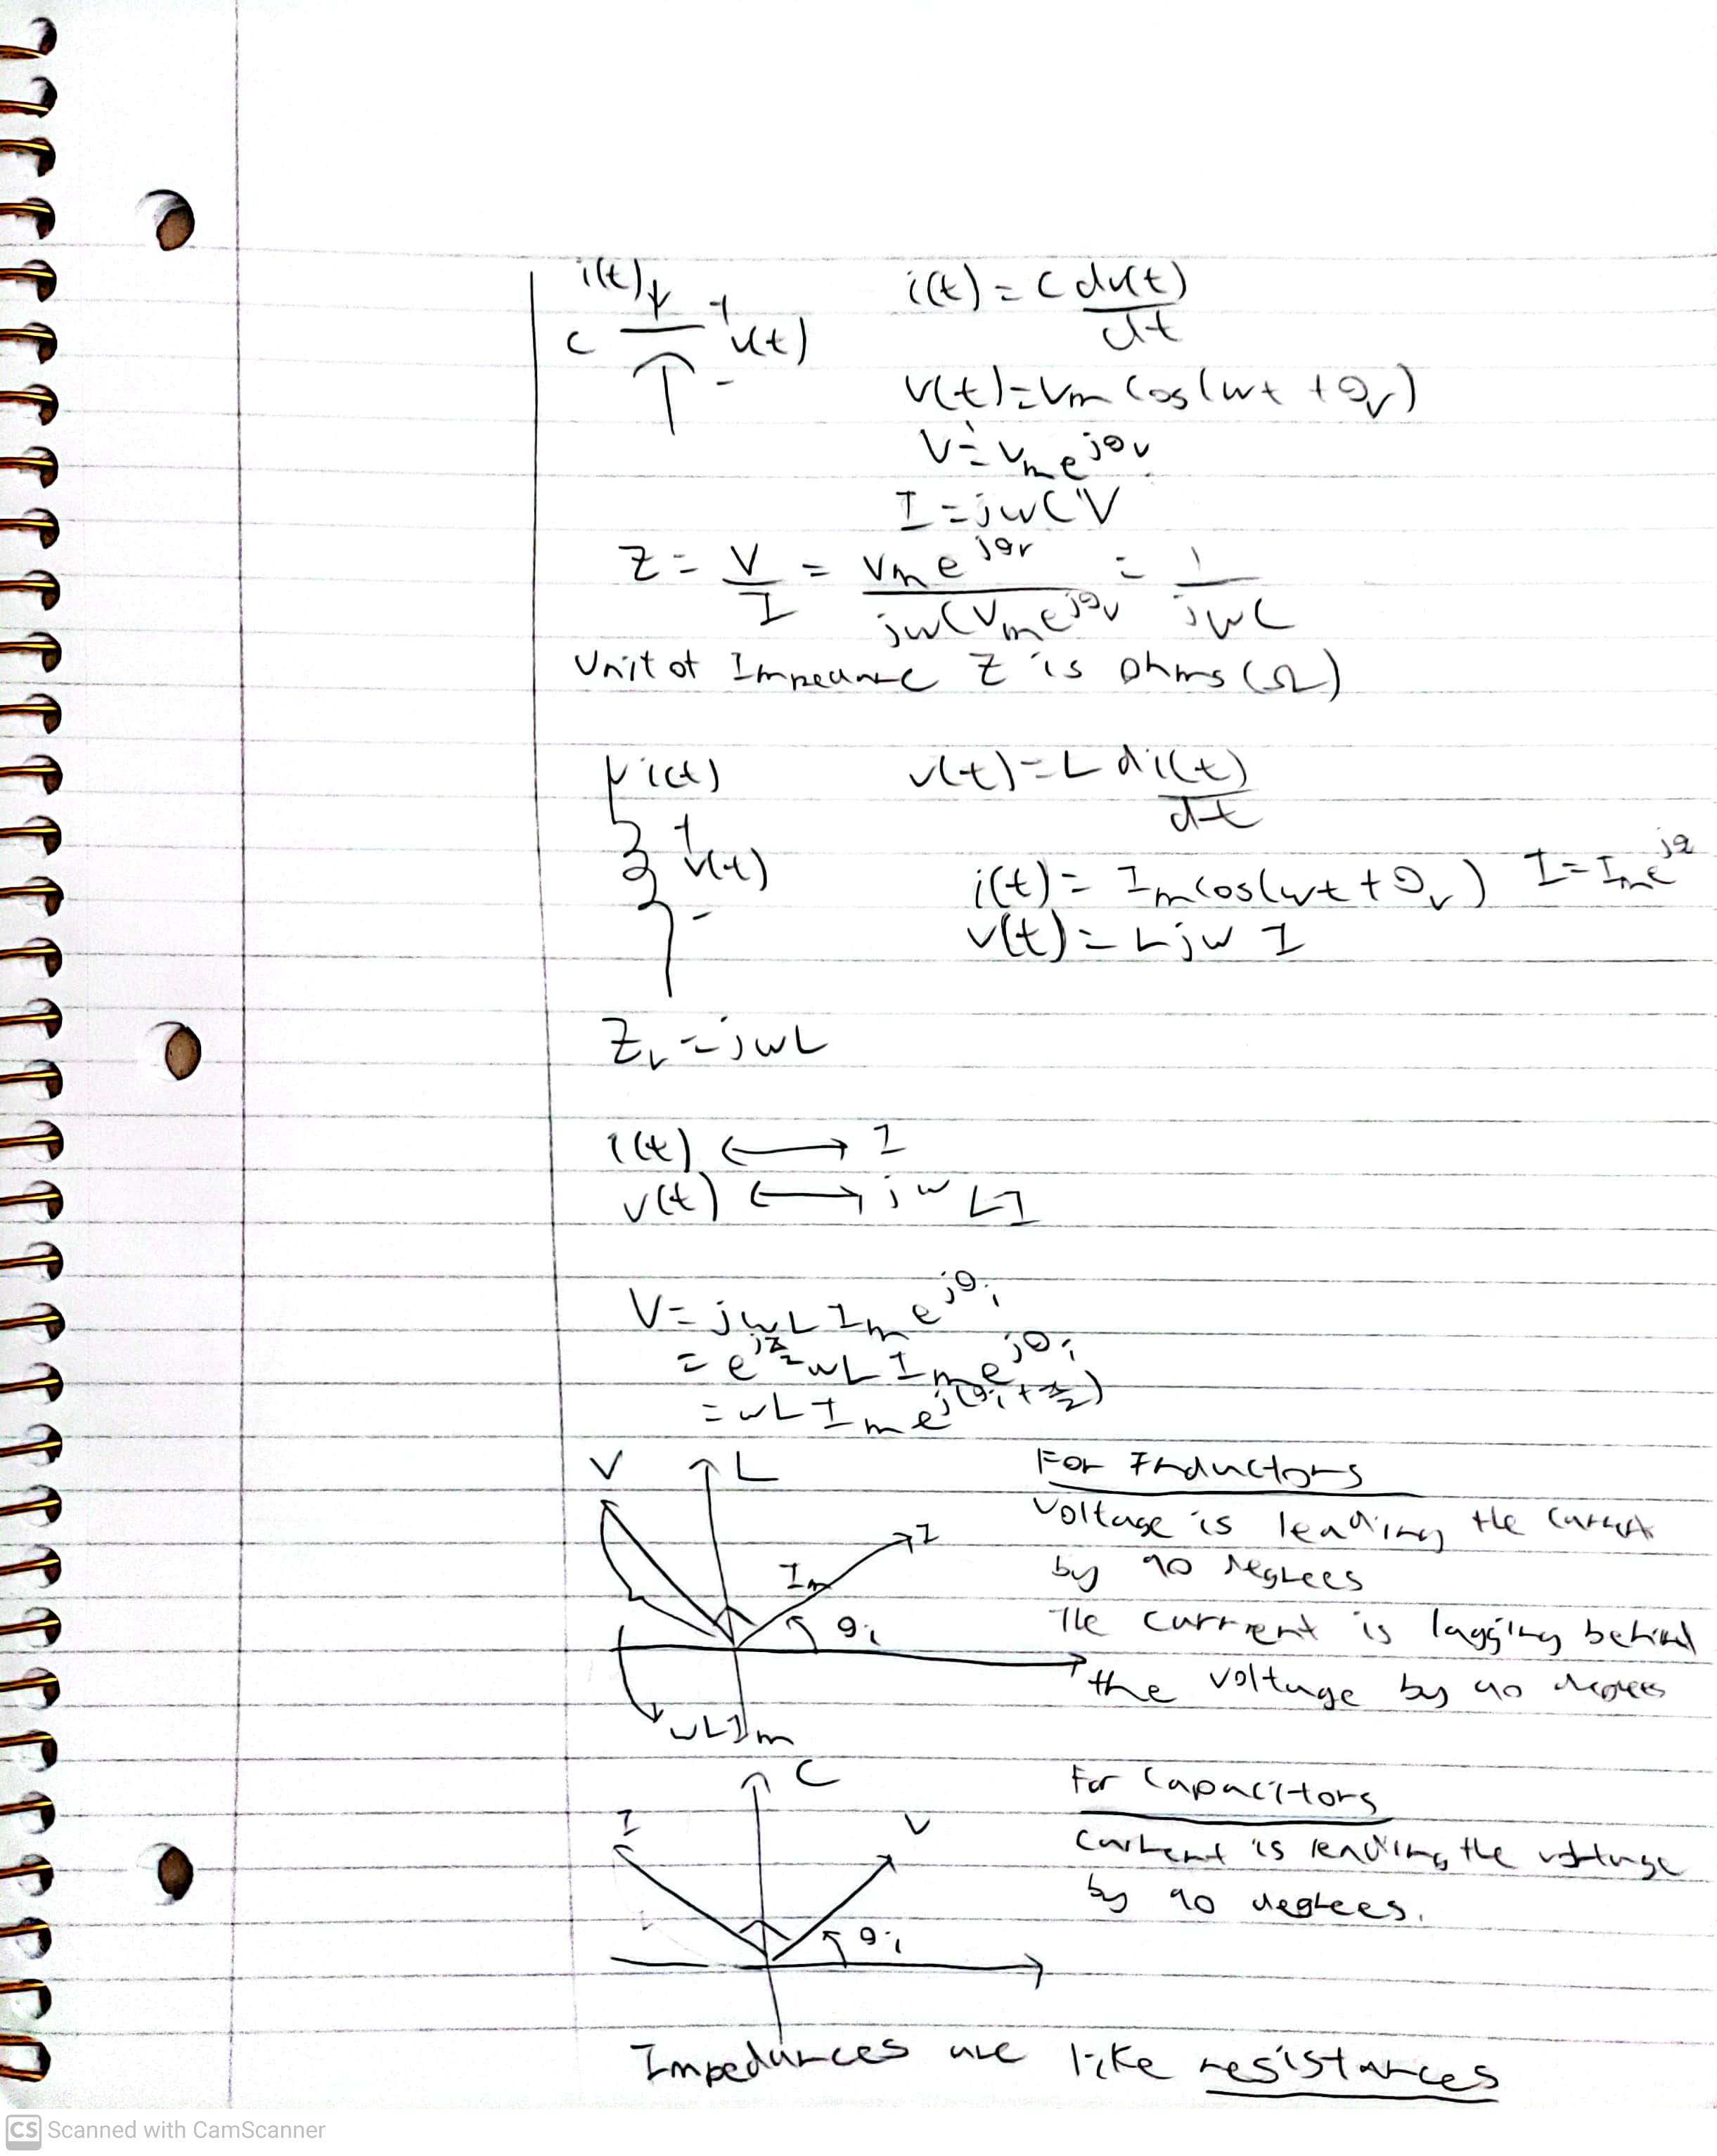 i(t)
i(t) = C dv(t)/dt
C + v(t) -
v(t) = Vm cos(wt + θv)
V = Vm e^jθv
I = jwCV
Z = V/I = Vm e^jθv / jwCVm e^jθv = 1/jwC
Unit of Impedance Z is Ohms (Ω)
i(t)
v(t) = L di(t)/dt
+ v(t) -
i(t) = Im cos(wt + θv) I = Im e^jθ
v(t) = Ljw I
ZL = jwL
i(t) ⟷ I
v(t) ⟷ jw LI
V = jwL Im e^jθi
= e^jπ/2 wL Im e^jθi
= wL Im e^j(θi + π/2)
V L
I
Im
θi
wLIm
For Inductors
Voltage is leading the current
by 90 degrees
The current is lagging behind
the voltage by 90 degrees
C
I V
θi
For Capacitors
Current is leading the voltage
by 90 degrees.
Impedances are like resistances
CS Scanned with CamScanner